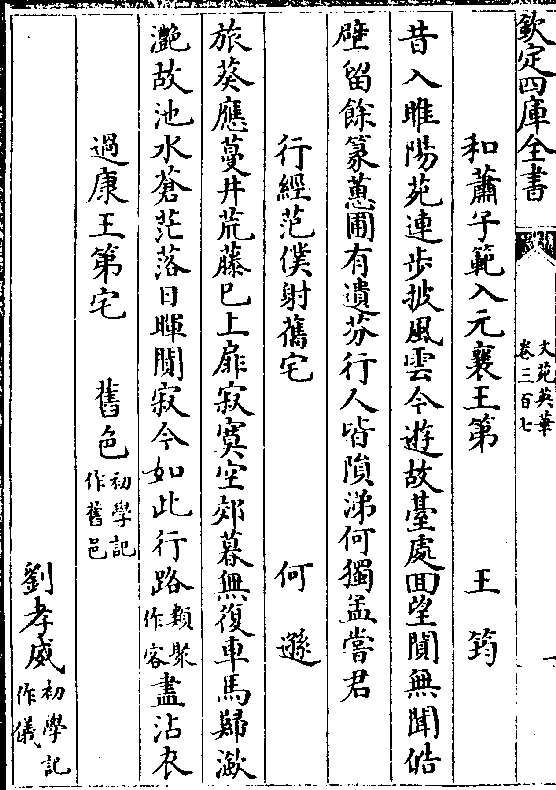 欽定四庫全書
文苑英華
卷三百七
和蕭子範入元襄王第　王筠
昔入睢陽苑連步披風雲今遊故臺處回望閴無聞皓
壁留餘篆蕙圃有遺芬行人皆隕涕何獨孟嘗君
行經范僕射舊宅　何遜
旅葵應蔓井荒藤巳上扉寂寞空郊暮無復車馬歸瀲
灧故池水蒼茫落日暉閴寂今如此行路類聚作客盡沾衣
過康王第宅　舊色初學記作舊邑
劉孝威初學記作儀